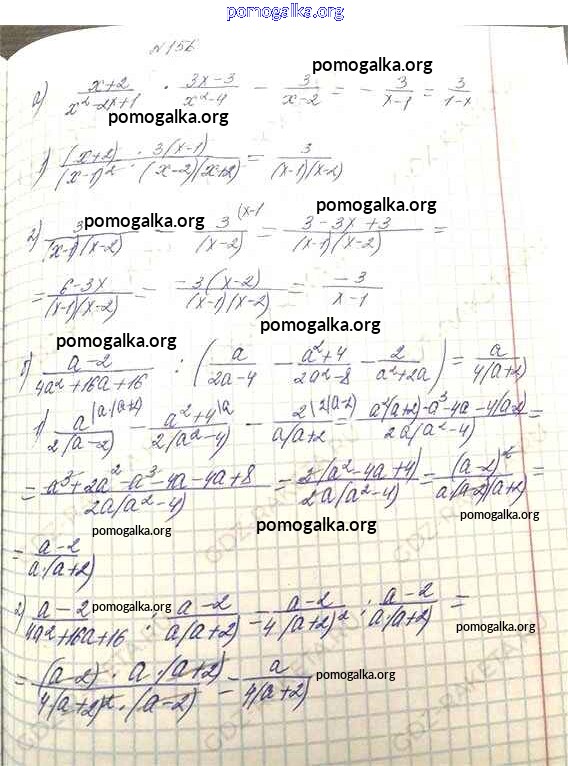 pomogalka.org
№156
pomogalka.org
а) (x+2)/(x²-2x+1) · (3x-3)/(x²-4) - 3/(x-2) = - 3/(x-1) = 3/(1-x)
pomogalka.org
1) (x+2) · 3(x-1)/((x-1)² · (x-2)(x+2)) = 3/((x-1)(x-2))
pomogalka.org
pomogalka.org
2) 3/((x-1)(x-2)) - 3 (x-1/(x-2) = (3-3x+3)/((x-1)(x-2)) =
= (6-3x)/((x-1)(x-2)) = -3(x-2)/((x-1)(x-2)) = -3/(x-1)
pomogalka.org
pomogalka.org
(a-2)/(4a²+16a+16) : (a/(2a-4) - (a²+4)/(2a²-8) - 2/(a²+2a)) = a/(4(a+2))
pomogalka.org
pomogalka.org
1) a |a(a+2)/(2(a-2)) - (a²+4) |a/(2(a²-4)) - 2 |2(a-2)/(a(a+2)) = (a²(a+2)-a³-4a-4(a-2))/(2a(a²-4)) =
pomogalka.org
= (a³+2a²-a³-4a-4a+8)/(2a(a²-4)) = 2(a²-4a+4)/(2a(a²-4)) = (a-2)²/(a(a-2)(a+2)) =
pomogalka.org
pomogalka.org
pomogalka.org
= (a-2)/(a(a+2))
2) (a-2)/(4a²+16a+16) : (a-2)/(a(a+2)) = (a-2)/(4(a+2)²) : (a-2)/(a(a+2)) =
pomogalka.org
pomogalka.org
pomogalka.org
= (a-2) · a·(a+2)/(4(a+2)² · (a-2)) = a/(4(a+2))
pomogalka.org